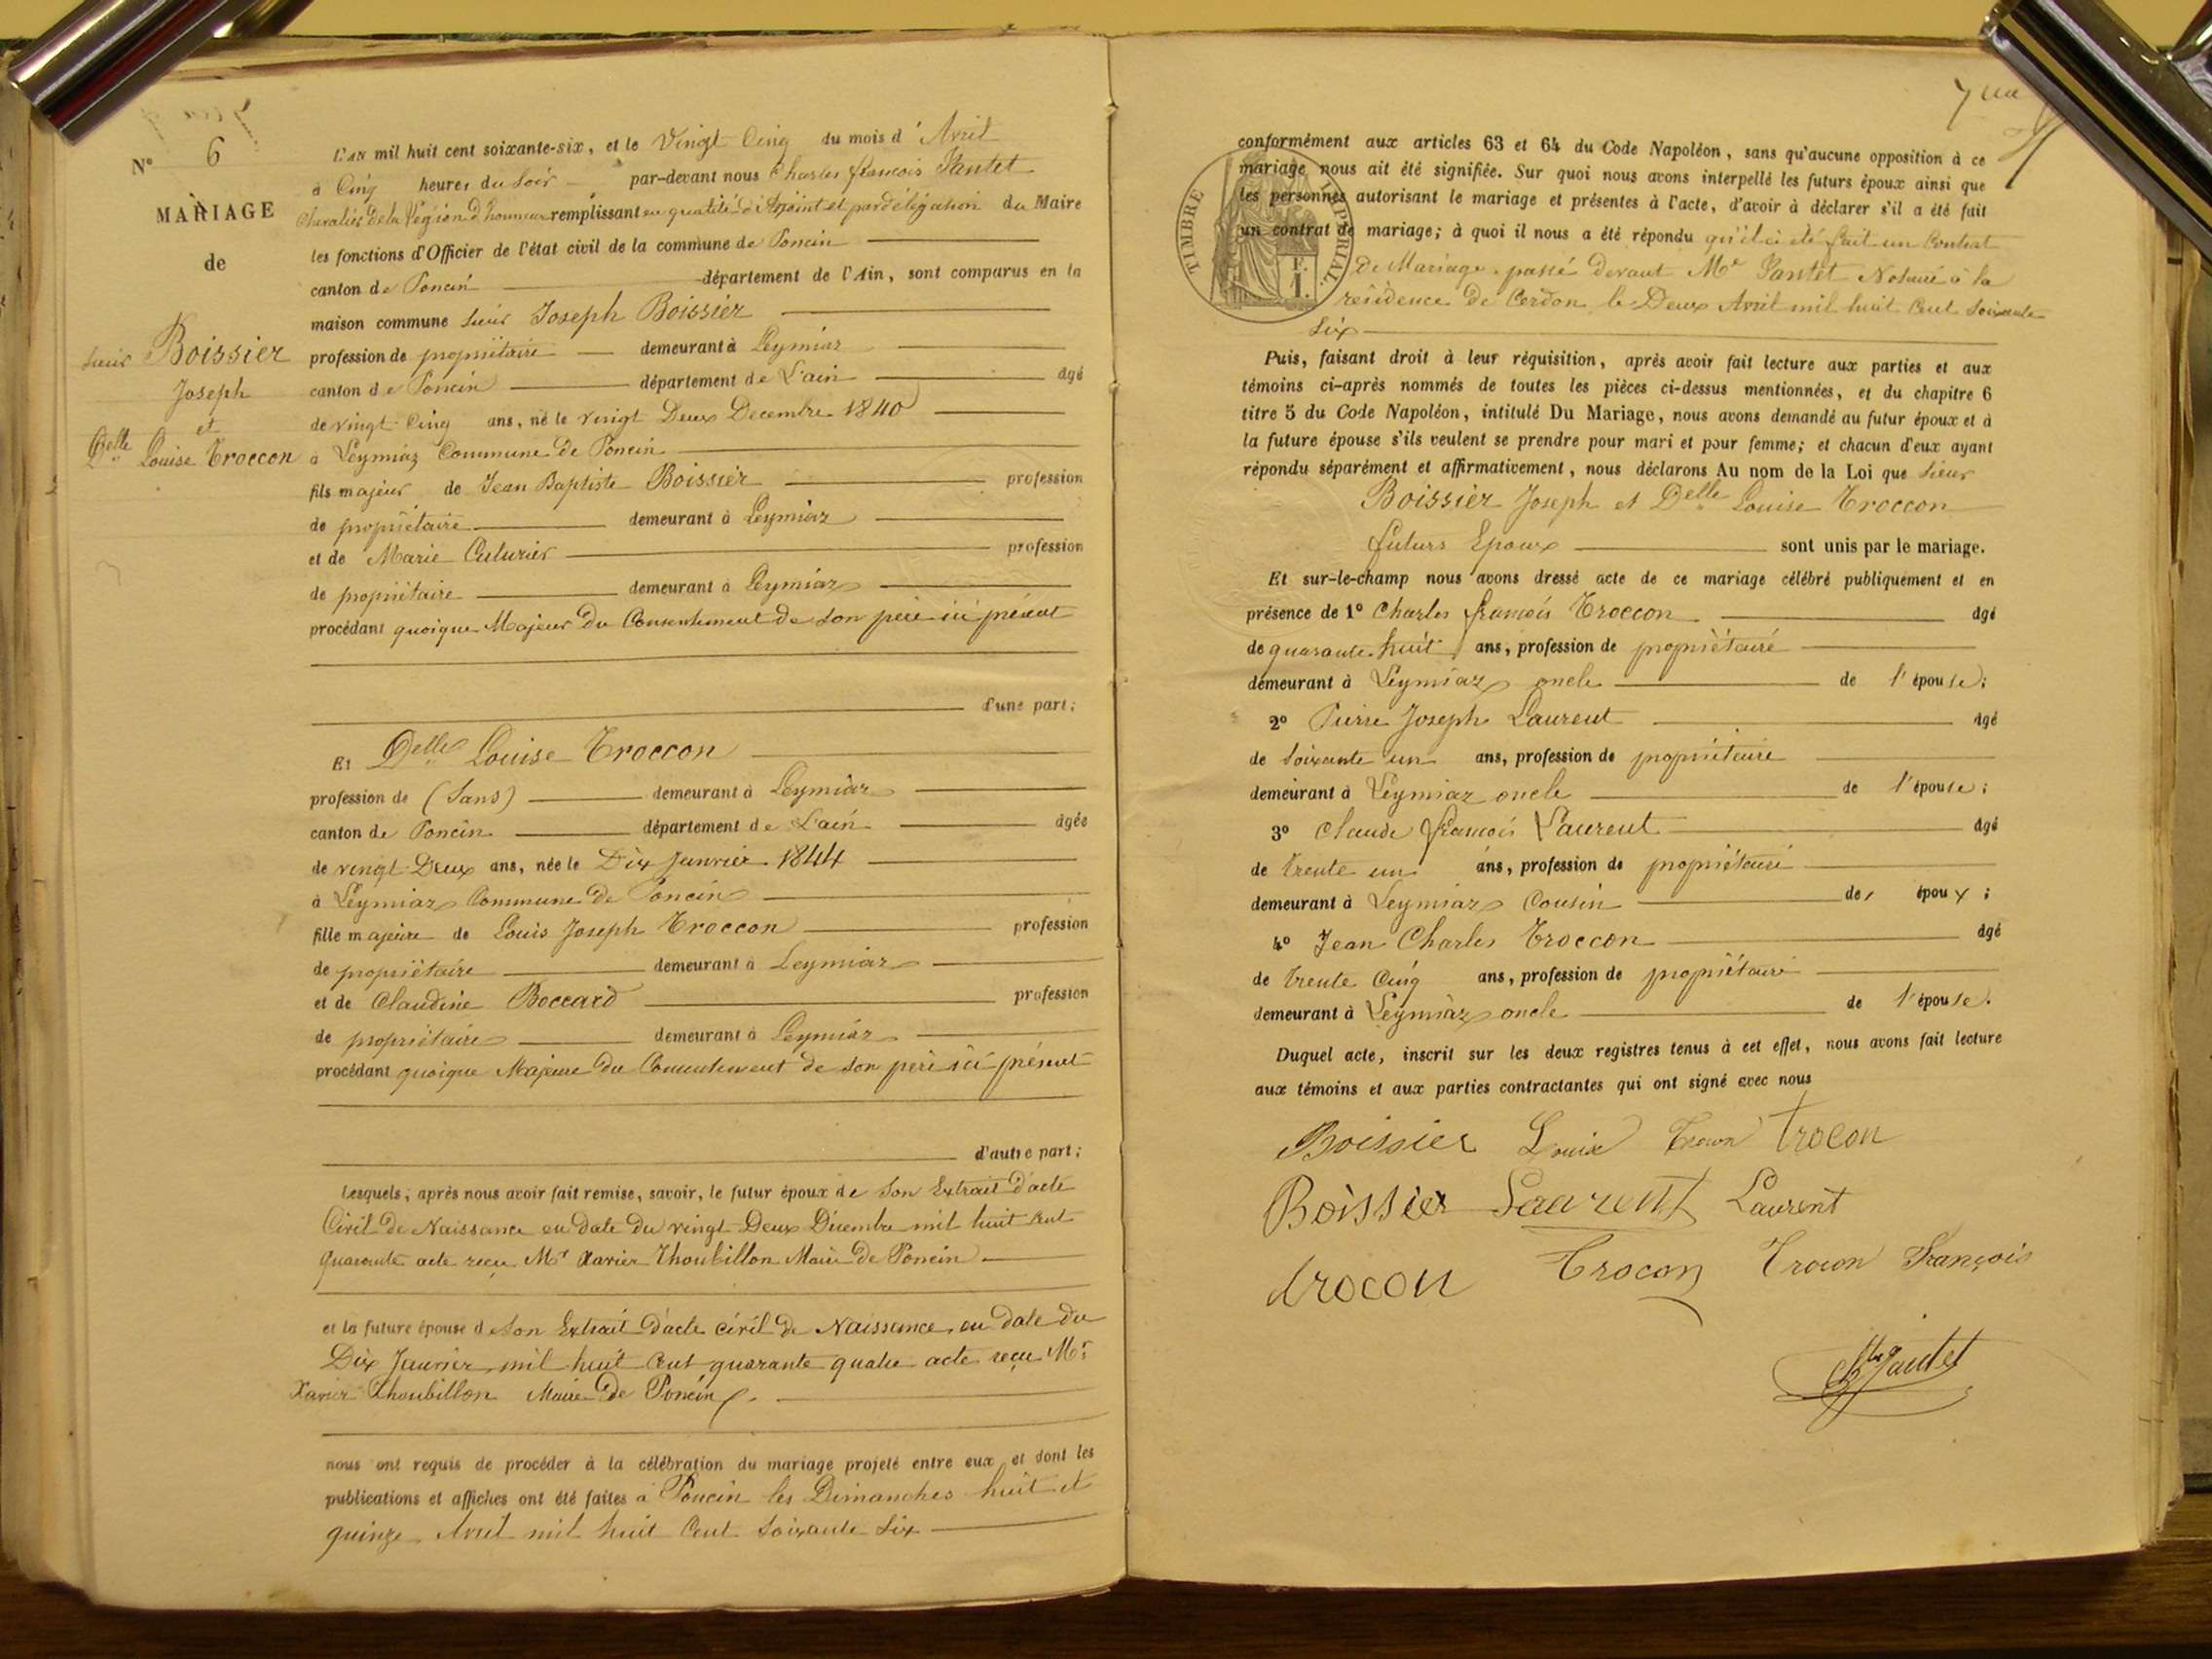 N° 6
MARIAGE
de
sieur Boissier
Joseph
et
Delle Louise Troccon
L'AN mil huit cent soixante-six, et le Vingt Cinq du mois d'Avril
à Cinq heures du Soir par-devant nous Charles françois Jantet
Chevalier de la Légion d'honneur remplissant en qualité d'Adjoint et par délégation du Maire
les fonctions d'Officier de l'état civil de la commune de Poncin
canton de Poncin département de l'Ain, sont comparus en la
maison commune sieur Joseph Boissier
profession de propriétaire demeurant à Leymiaz
canton de Poncin département de L'ain âgé
de vingt Cinq ans, né le vingt Deux Decembre 1840
à Leymiaz Commune de Poncin
fils majeur de Jean Baptiste Boissier profession
de propriétaire demeurant à Leymiaz
et de Marie Cuturier profession
de propriétaire demeurant à Leymiaz
procédant quoique Majeur du Consentement de son père ici présent
d'une part;
Et Delle Louise Troccon
profession de (Sans) demeurant à Leymiaz
canton de Poncin département de L'ain âgée
de vingt Deux ans, née le Dix Janvier 1844
à Leymiaz Commune de Poncin
fille majeure de Louis Joseph Troccon profession
de propriétaire demeurant à Leymiaz
et de Claudine Boccard profession
de propriétaire demeurant à Leymiaz
procédant quoique Majeure du Consentement de son père ici présent
d'autre part;
Lesquels, après nous avoir fait remise, savoir, le futur époux de Son Extrait d'acte
Civil de Naissance en date du vingt Deux Décembre mil huit cent
quarante acte reçu Mr Xavier Thoubillon Maire de Poncin
et la future épouse de Son Extrait d'acte civil de Naissance en date du
Dix Janvier mil huit Cent quarante quatre acte reçu Mr
Xavier Thoubillon Maire de Poncin
nous ont requis de procéder à la célébration du mariage projeté entre eux et dont les
publications et affiches ont été faites à Poncin les Dimanches huit et
quinze Avril mil huit Cent Soixante Six
conformément aux articles 63 et 64 du Code Napoléon, sans qu'aucune opposition à ce
mariage nous ait été signifiée. Sur quoi nous avons interpellé les futurs époux ainsi que
les personnes autorisant le mariage et présentes à l'acte, d'avoir à déclarer s'il a été fait
un contrat de mariage; à quoi il nous a été répondu qu'il a été fait un Contrat
de Mariage passé devant Me Jantet Notaire à la
résidence de Cerdon le Deux Avril mil huit Cent Soixante
Six
TIMBRE IMPÉRIAL.
F.
1.
Puis, faisant droit à leur réquisition, après avoir fait lecture aux parties et aux
témoins ci-après nommés de toutes les pièces ci-dessus mentionnées, et du chapitre 6
titre 5 du Code Napoléon, intitulé Du Mariage, nous avons demandé au futur époux et à
la future épouse s'ils veulent se prendre pour mari et pour femme; et chacun d'eux ayant
répondu séparément et affirmativement, nous déclarons Au nom de la Loi que Sieur
Boissier Joseph et Delle Louise Troccon
futurs Epoux sont unis par le mariage.
Et sur-le-champ nous avons dressé acte de ce mariage célébré publiquement et en
présence de 1° Charles françois Troccon âgé
de quarante huit ans, profession de propriétaire
demeurant à Leymiaz oncle de l'épouse;
2° Pierre Joseph Laurent âgé
de Soixante un ans, profession de propriétaire
demeurant à Leymiaz oncle de l'épouse;
3° Claude françois Laurent âgé
de trente un ans, profession de propriétaire
demeurant à Leymiaz Cousin de, époux;
4° Jean Charles Troccon âgé
de trente Cinq ans, profession de propriétaire
demeurant à Leymiaz oncle de l'épouse.
Duquel acte, inscrit sur les deux registres tenus à cet effet, nous avons fait lecture
aux témoins et aux parties contractantes qui ont signé avec nous
Boissier Louise Trocon Trocon
Boissier Laurent Laurent
trocon Trocon Trocon François
Jantet